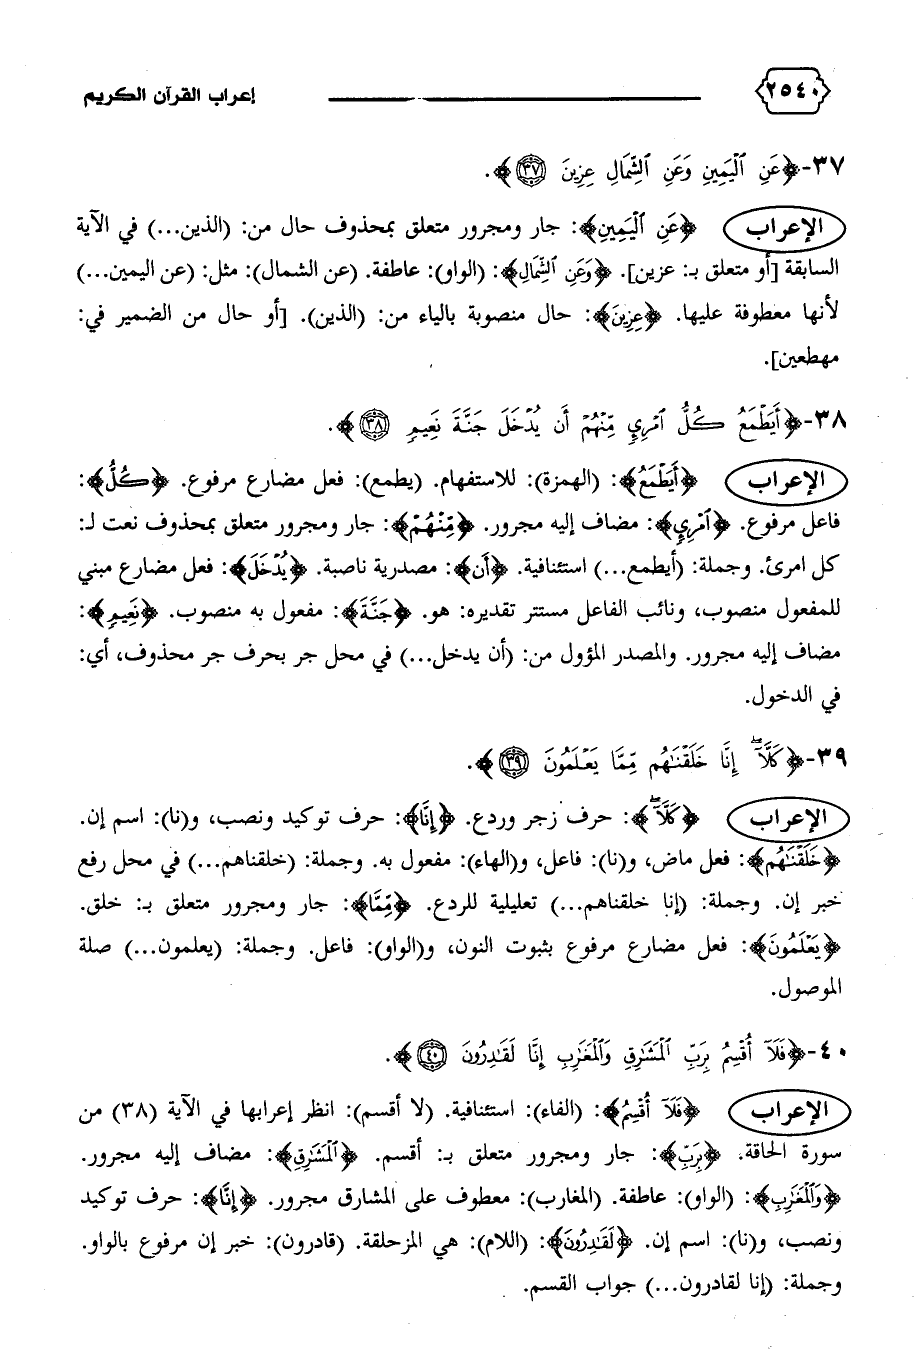 ٢٥٤٠ إعراب القرآن الكريم
٣٧-﴿عَنِ ٱلۡيَمِينِ وَعَنِ ٱلشِّمَالِ عِزِينَ ٣٧﴾.
الإعراب ﴿عَنِ ٱلۡيَمِينِ﴾: جار ومجرور متعلق بمحذوف حال من: (الذين...) في الآية
السابقة [أو متعلق بـ: عزين]. ﴿وَعَنِ ٱلشِّمَالِ﴾: (الواو): عاطفة. (عن الشمال): مثل: (عن اليمين...)
لأنها معطوفة عليها. ﴿عِزِينَ﴾: حال منصوبة بالياء من: (الذين). [أو حال من الضمير في:
مهطعين].
٣٨-﴿أَيَطۡمَعُ كُلُّ ٱمۡرِيٕٖ مِّنۡهُمۡ أَن يُدۡخَلَ جَنَّةَ نَعِيمٖ ٣٨﴾.
الإعراب ﴿أَيَطۡمَعُ﴾: (الهمزة): للاستفهام. (يطمع): فعل مضارع مرفوع. ﴿كُلُّ﴾:
فاعل مرفوع. ﴿ٱمۡرِيٕٖ﴾: مضاف إليه مجرور. ﴿مِّنۡهُمۡ﴾: جار ومجرور متعلق بمحذوف نعت لـ:
كل امرئ. وجملة: (أيطمع...) استئنافية. ﴿أَن﴾: مصدرية ناصبة. ﴿يُدۡخَلَ﴾: فعل مضارع مبني
للمفعول منصوب، ونائب الفاعل مستتر تقديره: هو. ﴿جَنَّةَ﴾: مفعول به منصوب. ﴿نَعِيمٖ﴾:
مضاف إليه مجرور. والمصدر المؤول من: (أن يدخل...) في محل جر بحرف جر محذوف، أي:
في الدخول.
٣٩-﴿كَلَّآۖ إِنَّا خَلَقۡنَٰهُم مِّمَّا يَعۡلَمُونَ ٣٩﴾.
الإعراب ﴿كَلَّآۖ﴾: حرف زجر وردع. ﴿إِنَّا﴾: حرف توكيد ونصب، و(نا): اسم إن.
﴿خَلَقۡنَٰهُم﴾: فعل ماض، و(نا): فاعل، و(الهاء): مفعول به. وجملة: (خلقناهم...) في محل رفع
خبر إن. وجملة: (إنا خلقناهم...) تعليلية للردع. ﴿مِّمَّا﴾: جار ومجرور متعلق بـ: خلق.
﴿يَعۡلَمُونَ﴾: فعل مضارع مرفوع بثبوت النون، و(الواو): فاعل. وجملة: (يعلمون...) صلة
الموصول.
٤٠-﴿فَلَآ أُقۡسِمُ بِرَبِّ ٱلۡمَشَٰرِقِ وَٱلۡمَغَٰرِبِ إِنَّا لَقَٰدِرُونَ ٤٠﴾.
الإعراب ﴿فَلَآ أُقۡسِمُ﴾: (الفاء): استئنافية. (لا أقسم): انظر إعرابها في الآية (٣٨) من
سورة الحاقة. ﴿بِرَبِّ﴾: جار ومجرور متعلق بـ: أقسم. ﴿ٱلۡمَشَٰرِقِ﴾: مضاف إليه مجرور.
﴿وَٱلۡمَغَٰرِبِ﴾: (الواو): عاطفة. (المغارب): معطوف على المشارق مجرور. ﴿إِنَّا﴾: حرف توكيد
ونصب، و(نا): اسم إن. ﴿لَقَٰدِرُونَ﴾: (اللام): هي المزحلقة. (قادرون): خبر إن مرفوع بالواو.
وجملة: (إنا لقادرون...) جواب القسم.